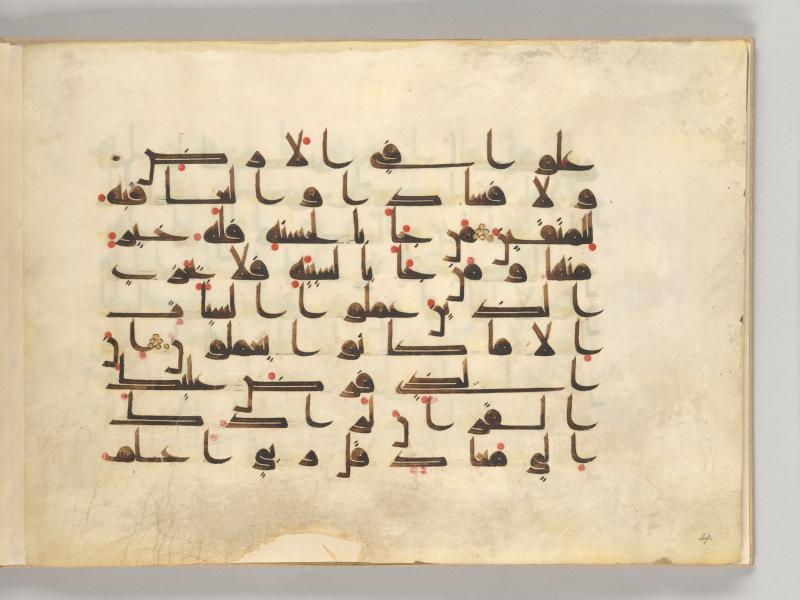 علوا في الارض
ولا فسادا والعاقبة
للمتقين من جا بالحسنة فله خير
منها ومن جا بالسيئة فلا يجزى
الذين عملوا السيات
الا ما كانوا يعملون ان
الذي فرض عليك
القران لرادك
الى معاد قل ربي اعلم